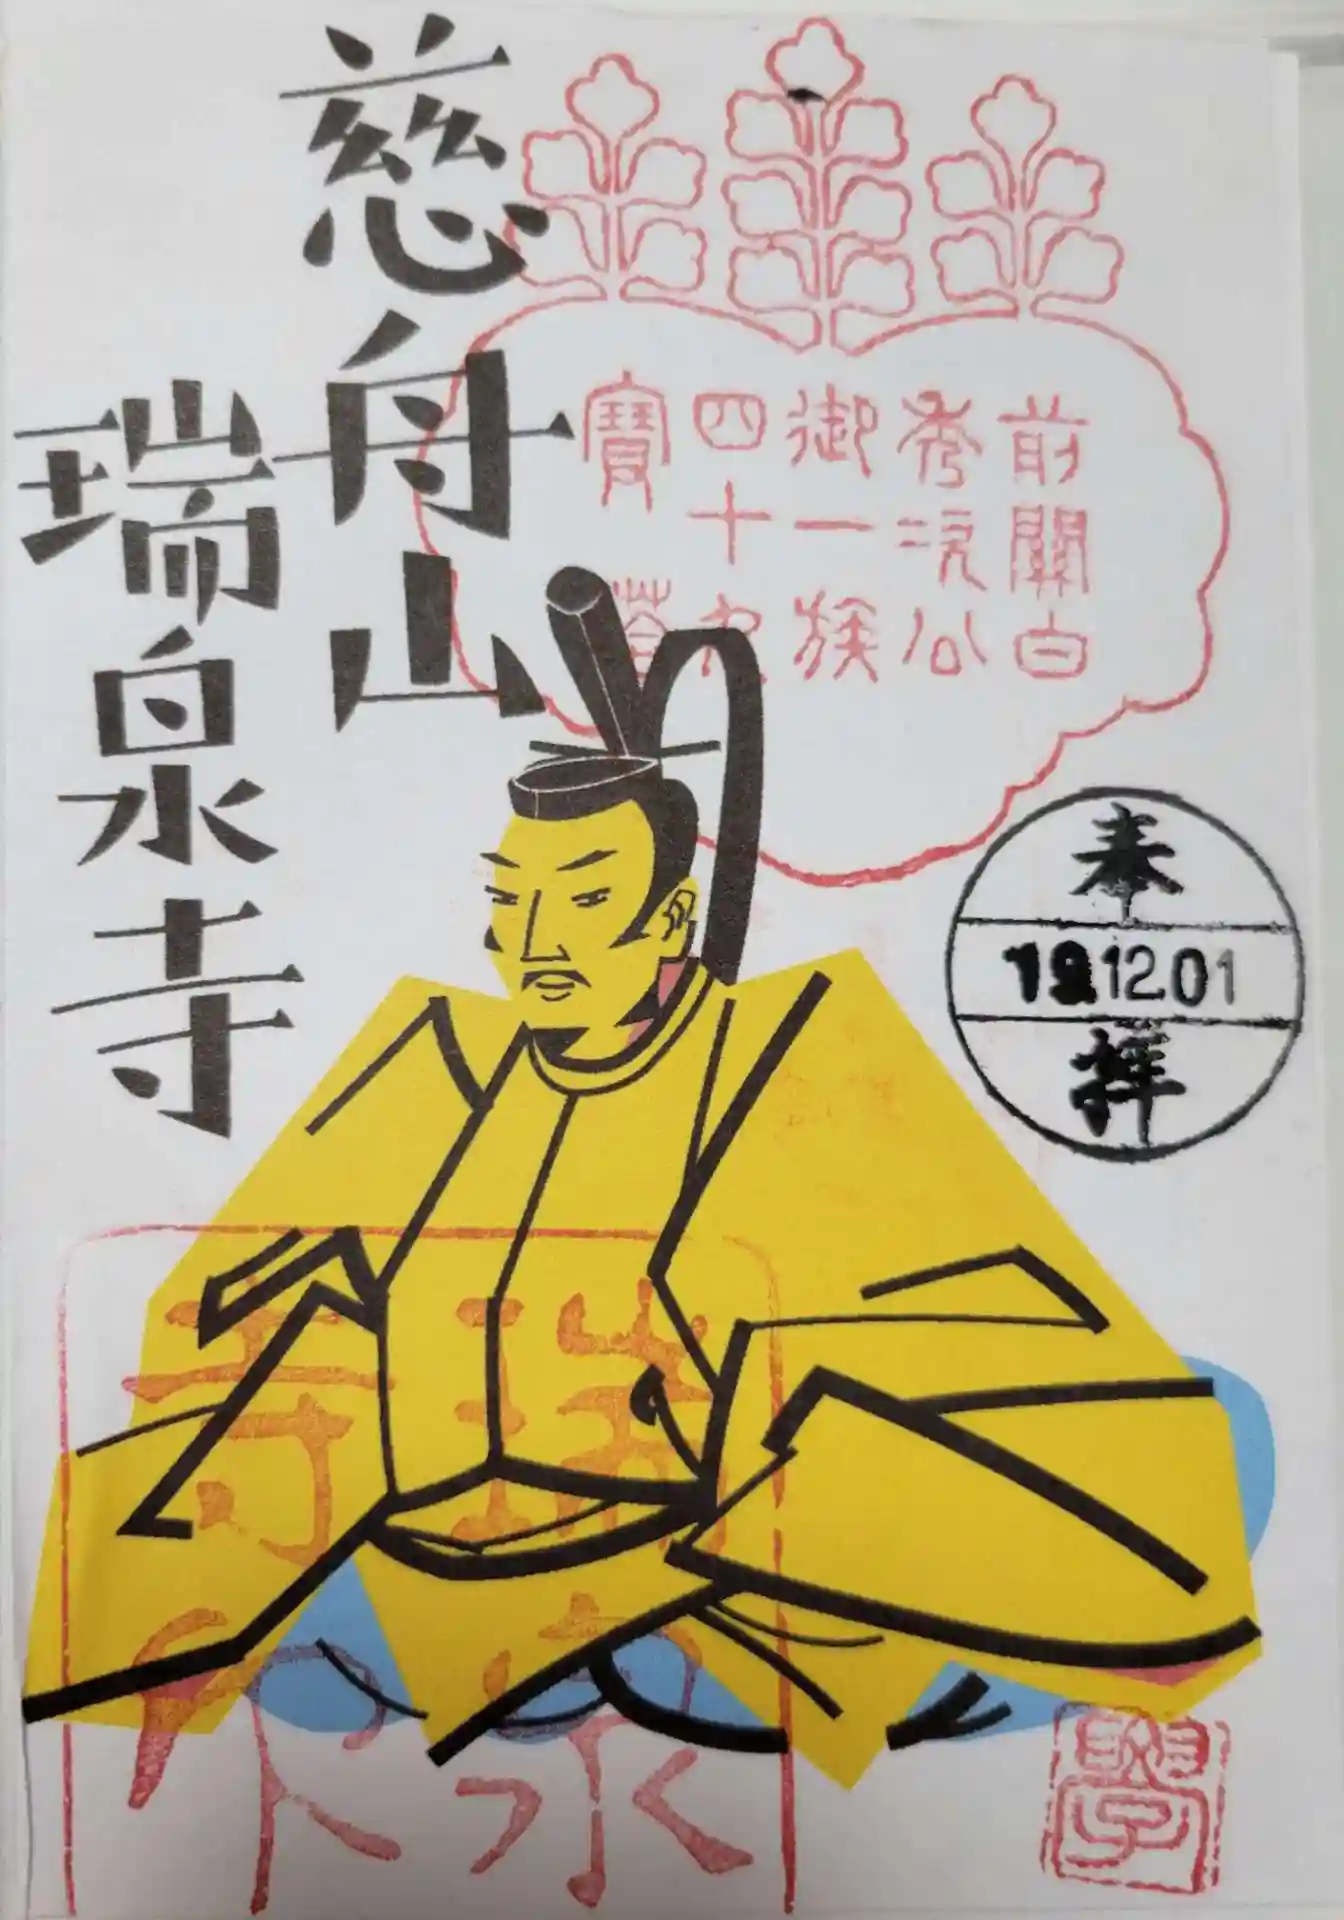 前關白
秀次公
御一族
四十
寶
奉
19.12.01
拝
慈舟山
瑞泉寺
瑞泉
寺